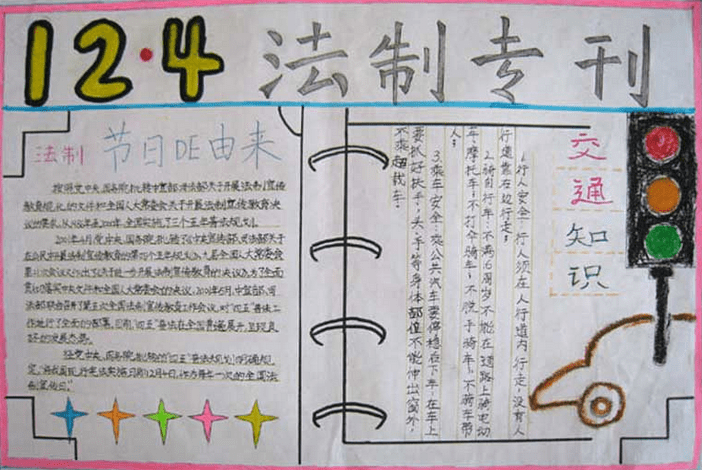 12·4 法制专刊
法制 节日DE由来
按照党中央、国务院批转中宣部、司法部关于开展法制宣传
教育规划的文件和全国人大常委会关于开展法制宣传教育决
议的要求,从1986年至2000年,全国实施了三个五年普法规划。
2001年4月,党中央、国务院批转了中央宣传部、司法部关于
在公民中开展法制宣传教育的第四个五年规划》,九届全国人大常委会
会议又作出了《关于进一步开展法制宣传教育的决议》。为了全面
贯彻落实中央文件和全国人大常委会的决议,2001年6月,中宣部、司
法部联合召开了第五次全国法制宣传教育工作会议,对"四五"普法工
作进行了全面的部署。目前,"四五"普法在全国普遍展开,呈现良
好的发展态势。
经党中央、国务院批转的"四五"普法规划,明确规
定,将我国现行宪法实施日即12月4日,作为每年一次的全国法
制宣传日。"
交通知识
1.行人安全:行人须在人行道内行走,没有人
行道靠右边行走;
2.骑自行车:不满16周岁不能在道路上骑电动
车、摩托车;不打伞骑车;不脱手骑车;不骑车带
人;
3.乘车安全:乘公共汽车要停稳在下车;在车上
要扶好扶手,头、手等身体部位不能伸出窗外,
不乘超载车;